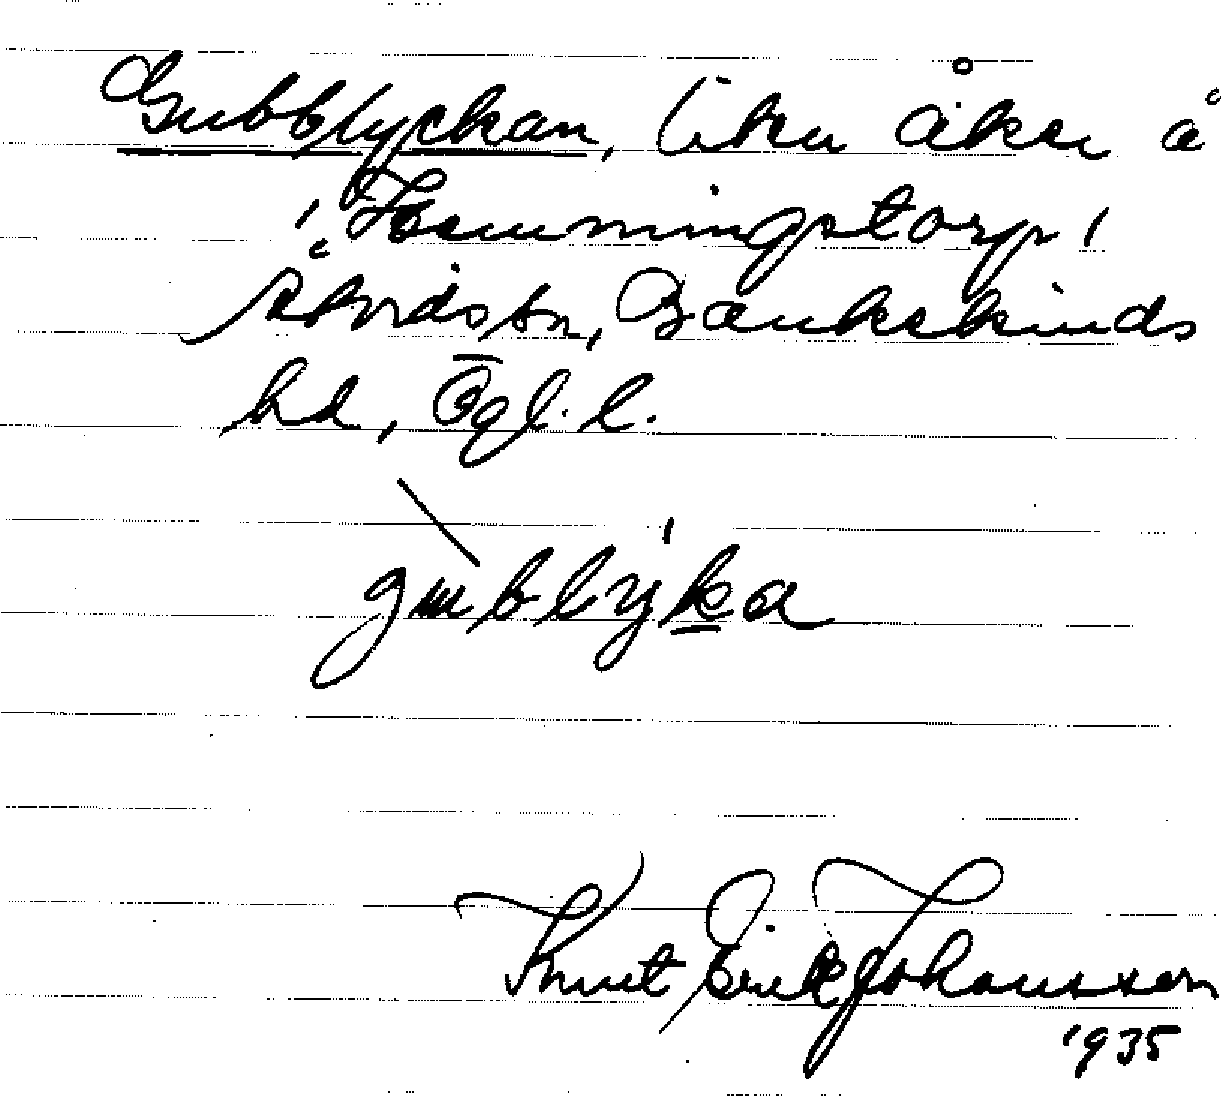 Gubblyckan, liten åker å
Hemmingstorp,
Åtvids sn, Bankekinds
hd, Ögl. l.
gubblýka
Knut Erik Johansson
1935